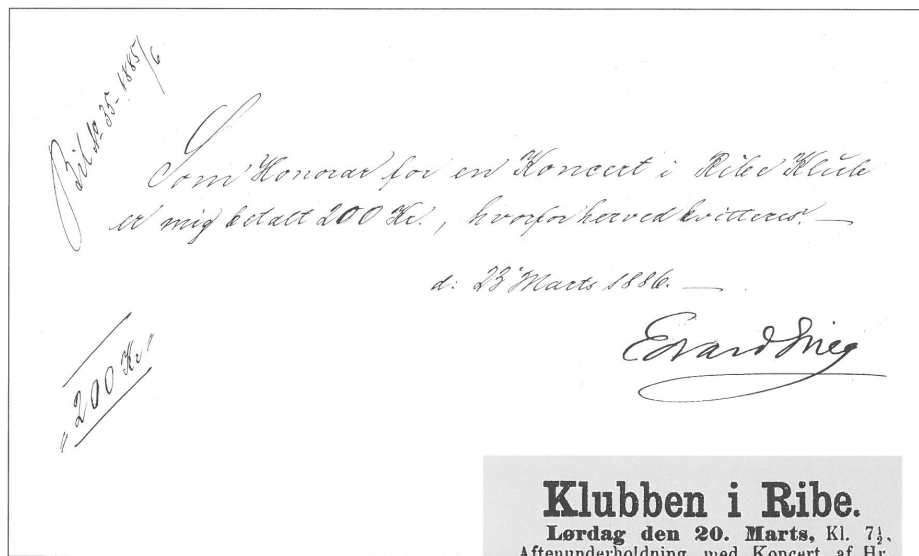 Bil No 35 - 1885/6
Som Honorar for en Koncert i Ribe Klub
er mig betalt 200 Kr., hvorfor herved kvitteres. —
d: 23 Marts 1886. —
Edvard Grieg
" 200 Kr "
Klubben i Ribe.
Lørdag den 20. Marts, Kl. 7½.
Aftenunderholdning med Koncert af Hr.